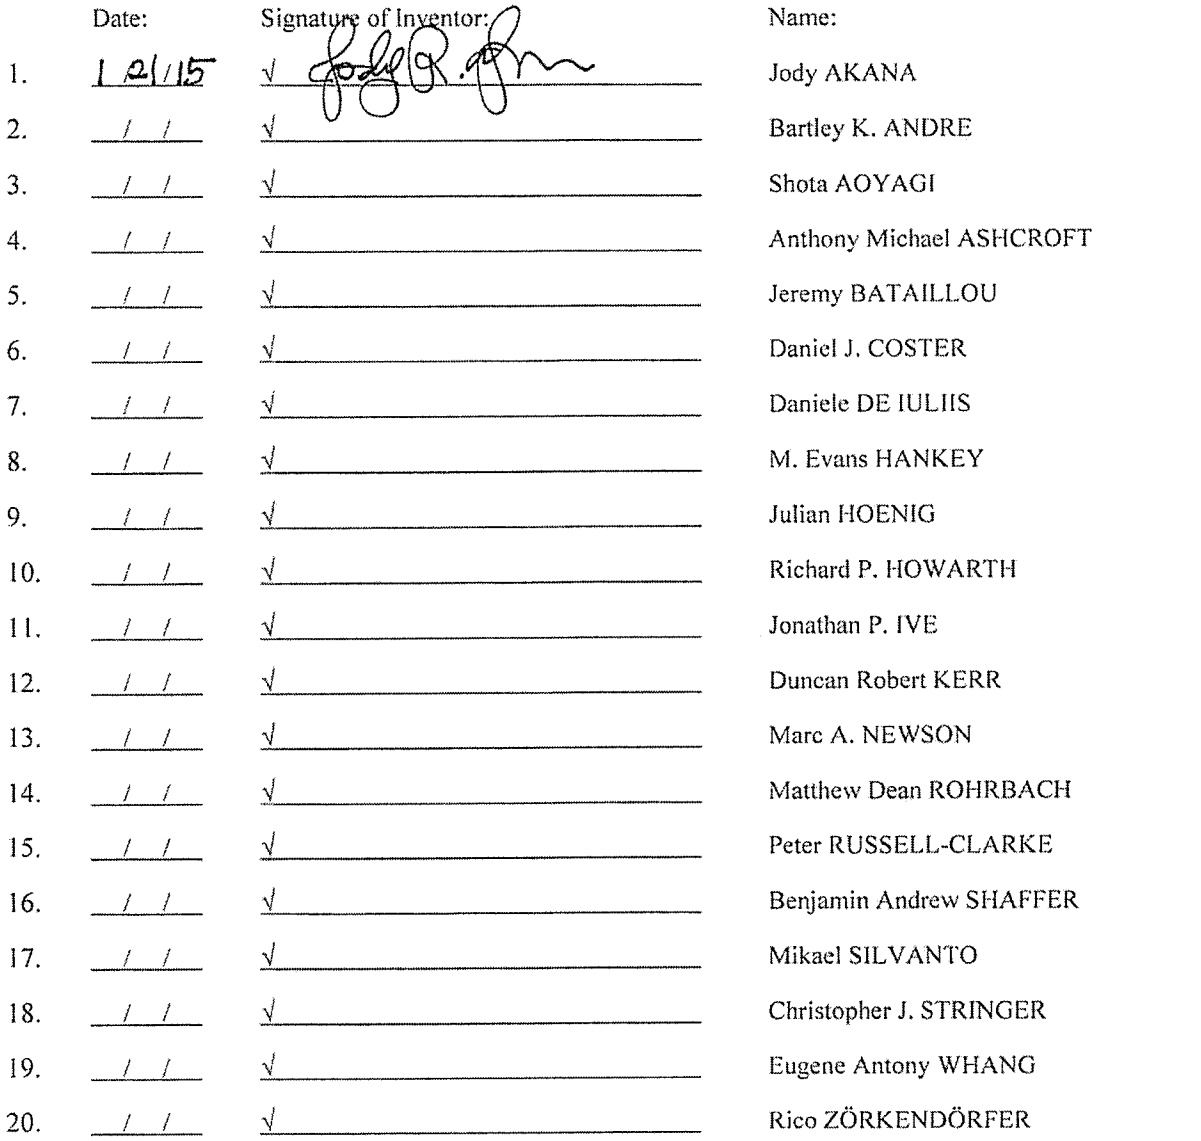 Date: Signature of Inventor: Name:
1. 1 21/15 √ Jody R. Jody AKANA
2. / / √ Bartley K. ANDRE
3. / / √ Shota AOYAGI
4. / / √ Anthony Michael ASHCROFT
5. / / √ Jeremy BATAILLOU
6. / / √ Daniel J. COSTER
7. / / √ Daniele DE IULIIS
8. / / √ M. Evans HANKEY
9. / / √ Julian HOENIG
10. / / √ Richard P. HOWARTH
11. / / √ Jonathan P. IVE
12. / / √ Duncan Robert KERR
13. / / √ Marc A. NEWSON
14. / / √ Matthew Dean ROHRBACH
15. / / √ Peter RUSSELL-CLARKE
16. / / √ Benjamin Andrew SHAFFER
17. / / √ Mikael SILVANTO
18. / / √ Christopher J. STRINGER
19. / / √ Eugene Antony WHANG
20. / / √ Rico ZÖRKENDÖRFER